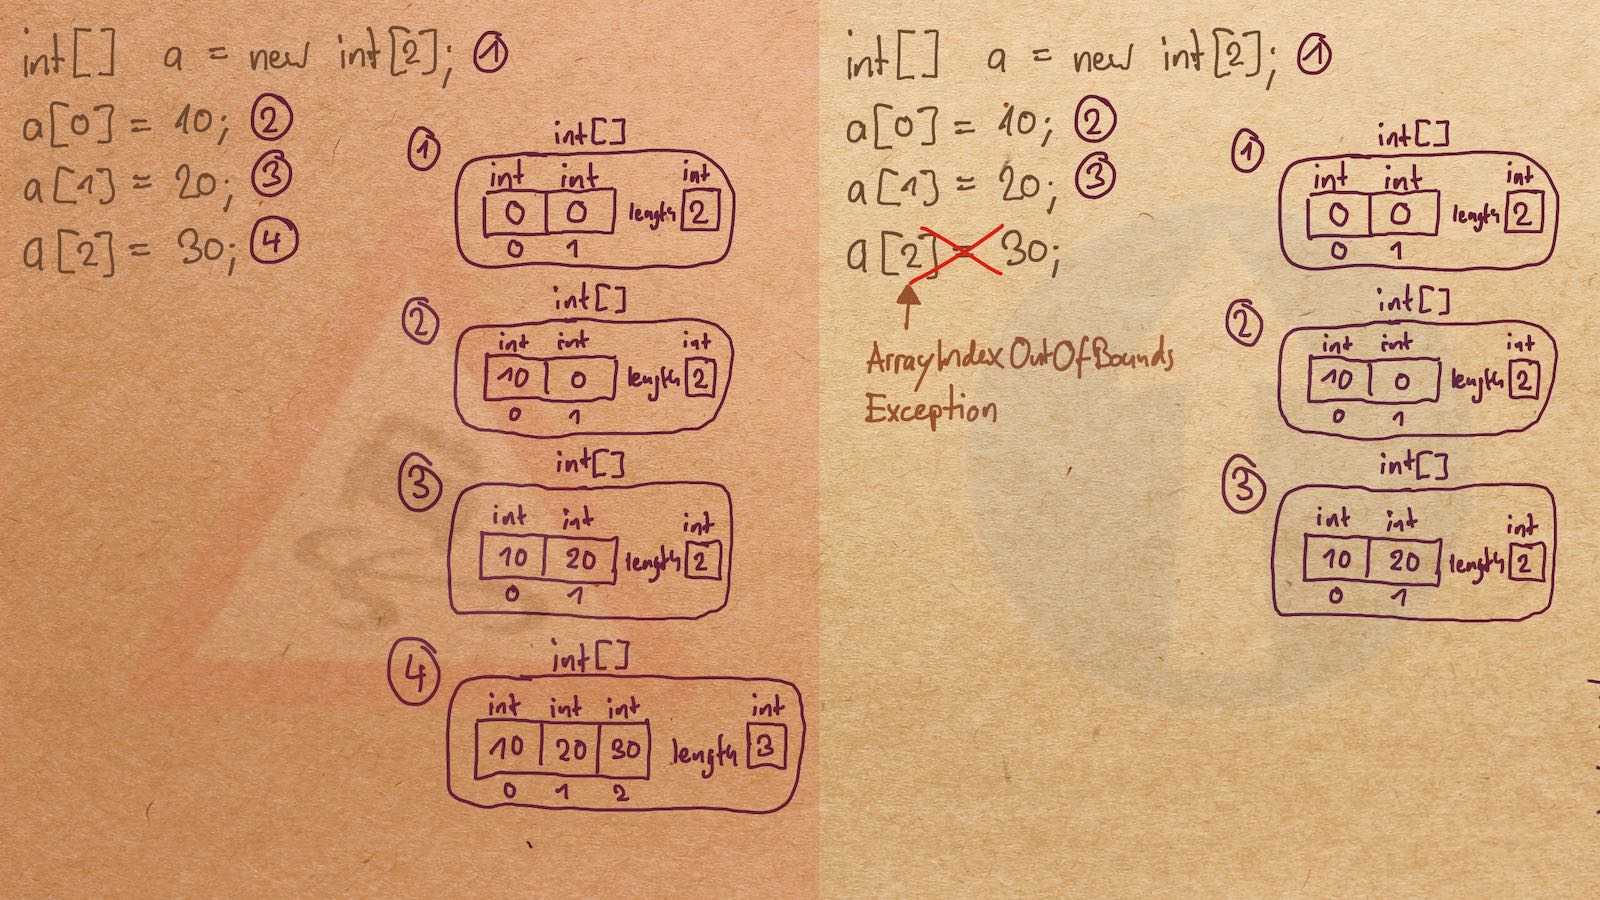 int[] a = new int[2]; 1
a[0] = 10; 2
a[1] = 20; 3
a[2] = 30; 4
1 int[]
int int int
0 0 length 2
0 1
2 int[]
int int int
10 0 length 2
0 1
3 int[]
int int int
10 20 length 2
0 1
4 int[]
int int int int
10 20 30 length 3
0 1 2
int[] a = new int[2]; 1
a[0] = 10; 2
a[1] = 20; 3
a[2] = 30;
ArrayIndexOutOfBounds
Exception
1 int[]
int int int
0 0 length 2
0 1
2 int[]
int int int
10 0 length 2
0 1
3 int[]
int int int
10 20 length 2
0 1